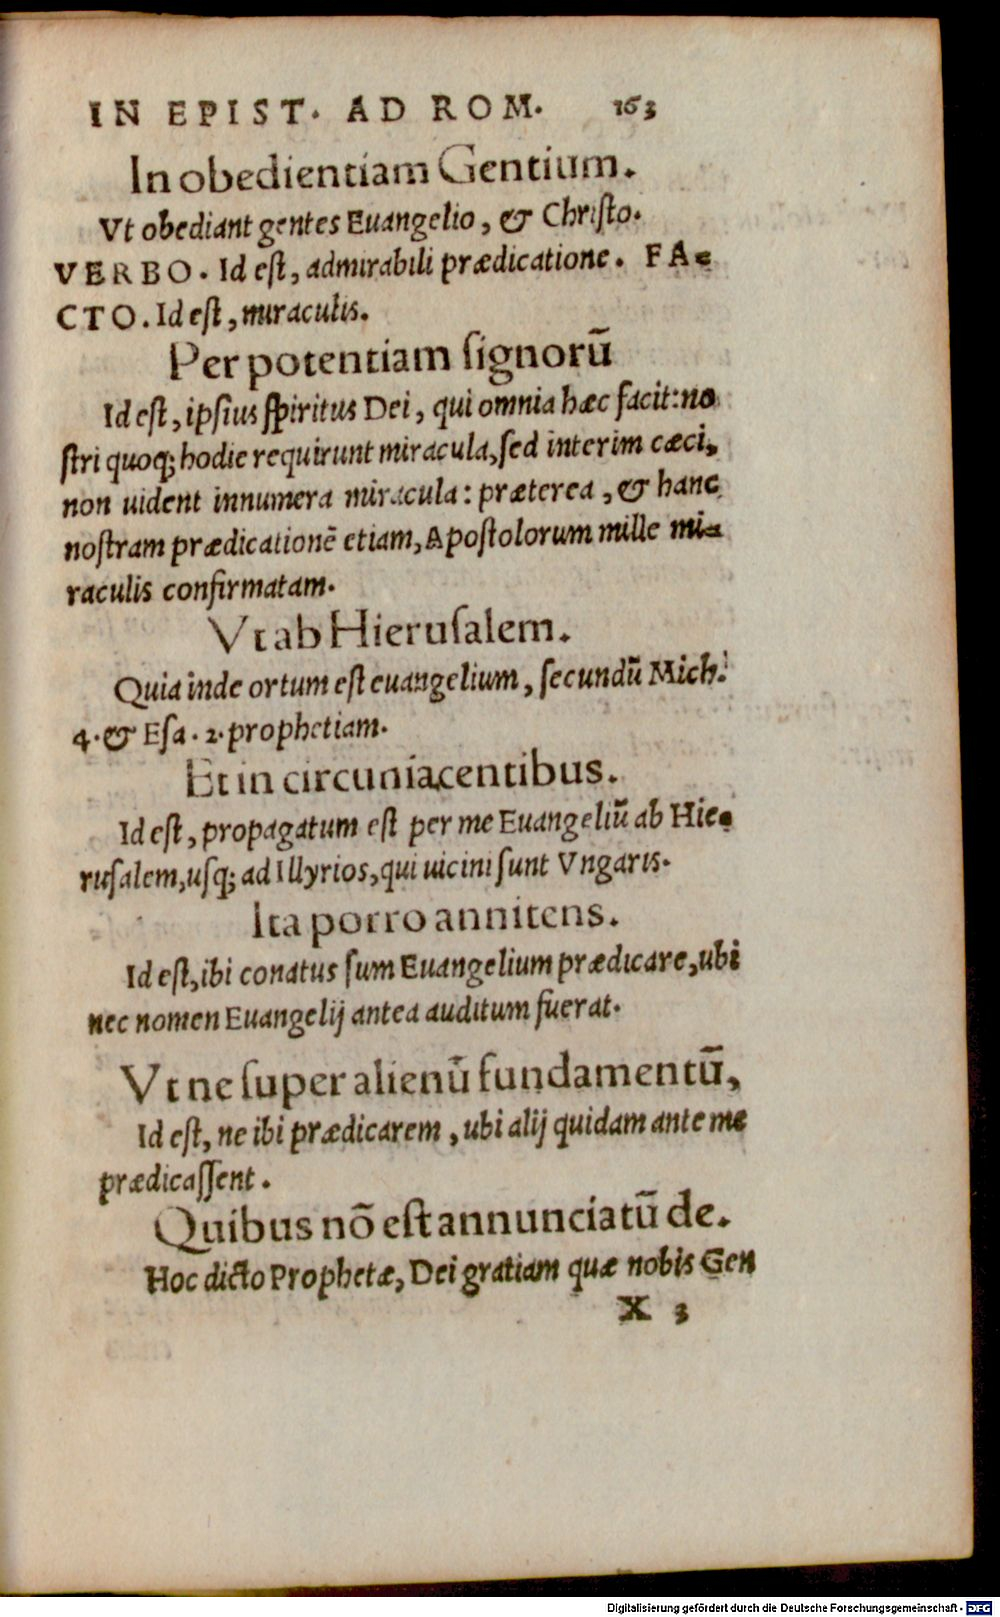 IN EPIST. AD ROM. 163
In obedientiam Gentium.
Vt obediant gentes Euangelio, & Christo.
VERBO. Id est, admirabili prædicatione. FA-
CTO. Id est, miraculis.
Per potentiam signorū
Id est, ipsius spiritus Dei, qui omnia hæc facit: no
stri quoq; hodie requirunt miracula, sed interim cæci,
non uident innumera miracula: præterea, & hanc
nostram prædicationē etiam, Apostolorum mille mi-
raculis confirmatam.
Vt ab Hierusalem.
Quia inde ortum est euangelium, secundū Mich.
4. & Esa. 2. prophetiam.
Et in circuniacentibus.
Id est, propagatum est per me Euangeliū ab Hie-
rusalem, usq; ad Illyrios, qui uicini sunt Vngaris.
Ita porro annitens.
Id est, ibi conatus sum Euangelium prædicare, ubi
nec nomen Euangelij antea auditum fuerat.
Vt ne super alienū fundamentū,
Id est, ne ibi prædicarem, ubi alij quidam ante me
prædicassent.
Quibus nō est annunciatū de.
Hoc dicto Prophetæ, Dei gratiam quæ nobis Gen
X 3
Digitalisierung gefördert durch die Deutsche Forschungsgemeinschaft - DFG